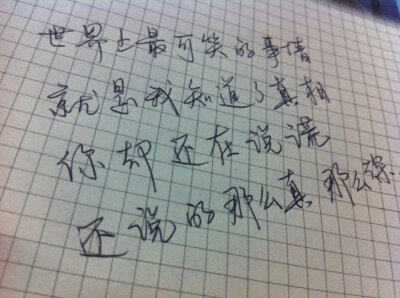 世界上最可笑的事情
就是我知道了真相
你却还在说谎
还说的那么真 那么深